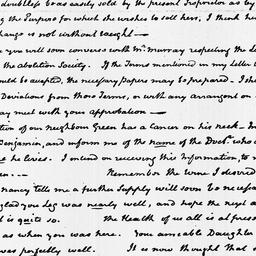 doubtless be as easily sold by the present Proprietor as by
the Purpose for which she wishes to sell her; I think he
change is not without weight—
you will soon converse with Mr. Murray respecting the
the abolition Society. If the Terms mentioned in my letter
ould be accepted, the necessary Papers may be prepared—I sh
Deviations from those Terms, or with any arrangemt. on
ay meet with your approbation—
tion of our neighbour Green has a Cancer on his neck—
Benjamin, and inform me of the name of the Doctr. who
he tries. I intend on receiving this Information, to
en.— Remember the wine I desired
nancy tells me a further Supply will soon be necessa
glad your Leg was nearly well, and hope the next
is quite so. The Health of us all is at pres
as when you were here. Your amiable Daughter
was perfectly well. It is now thought that